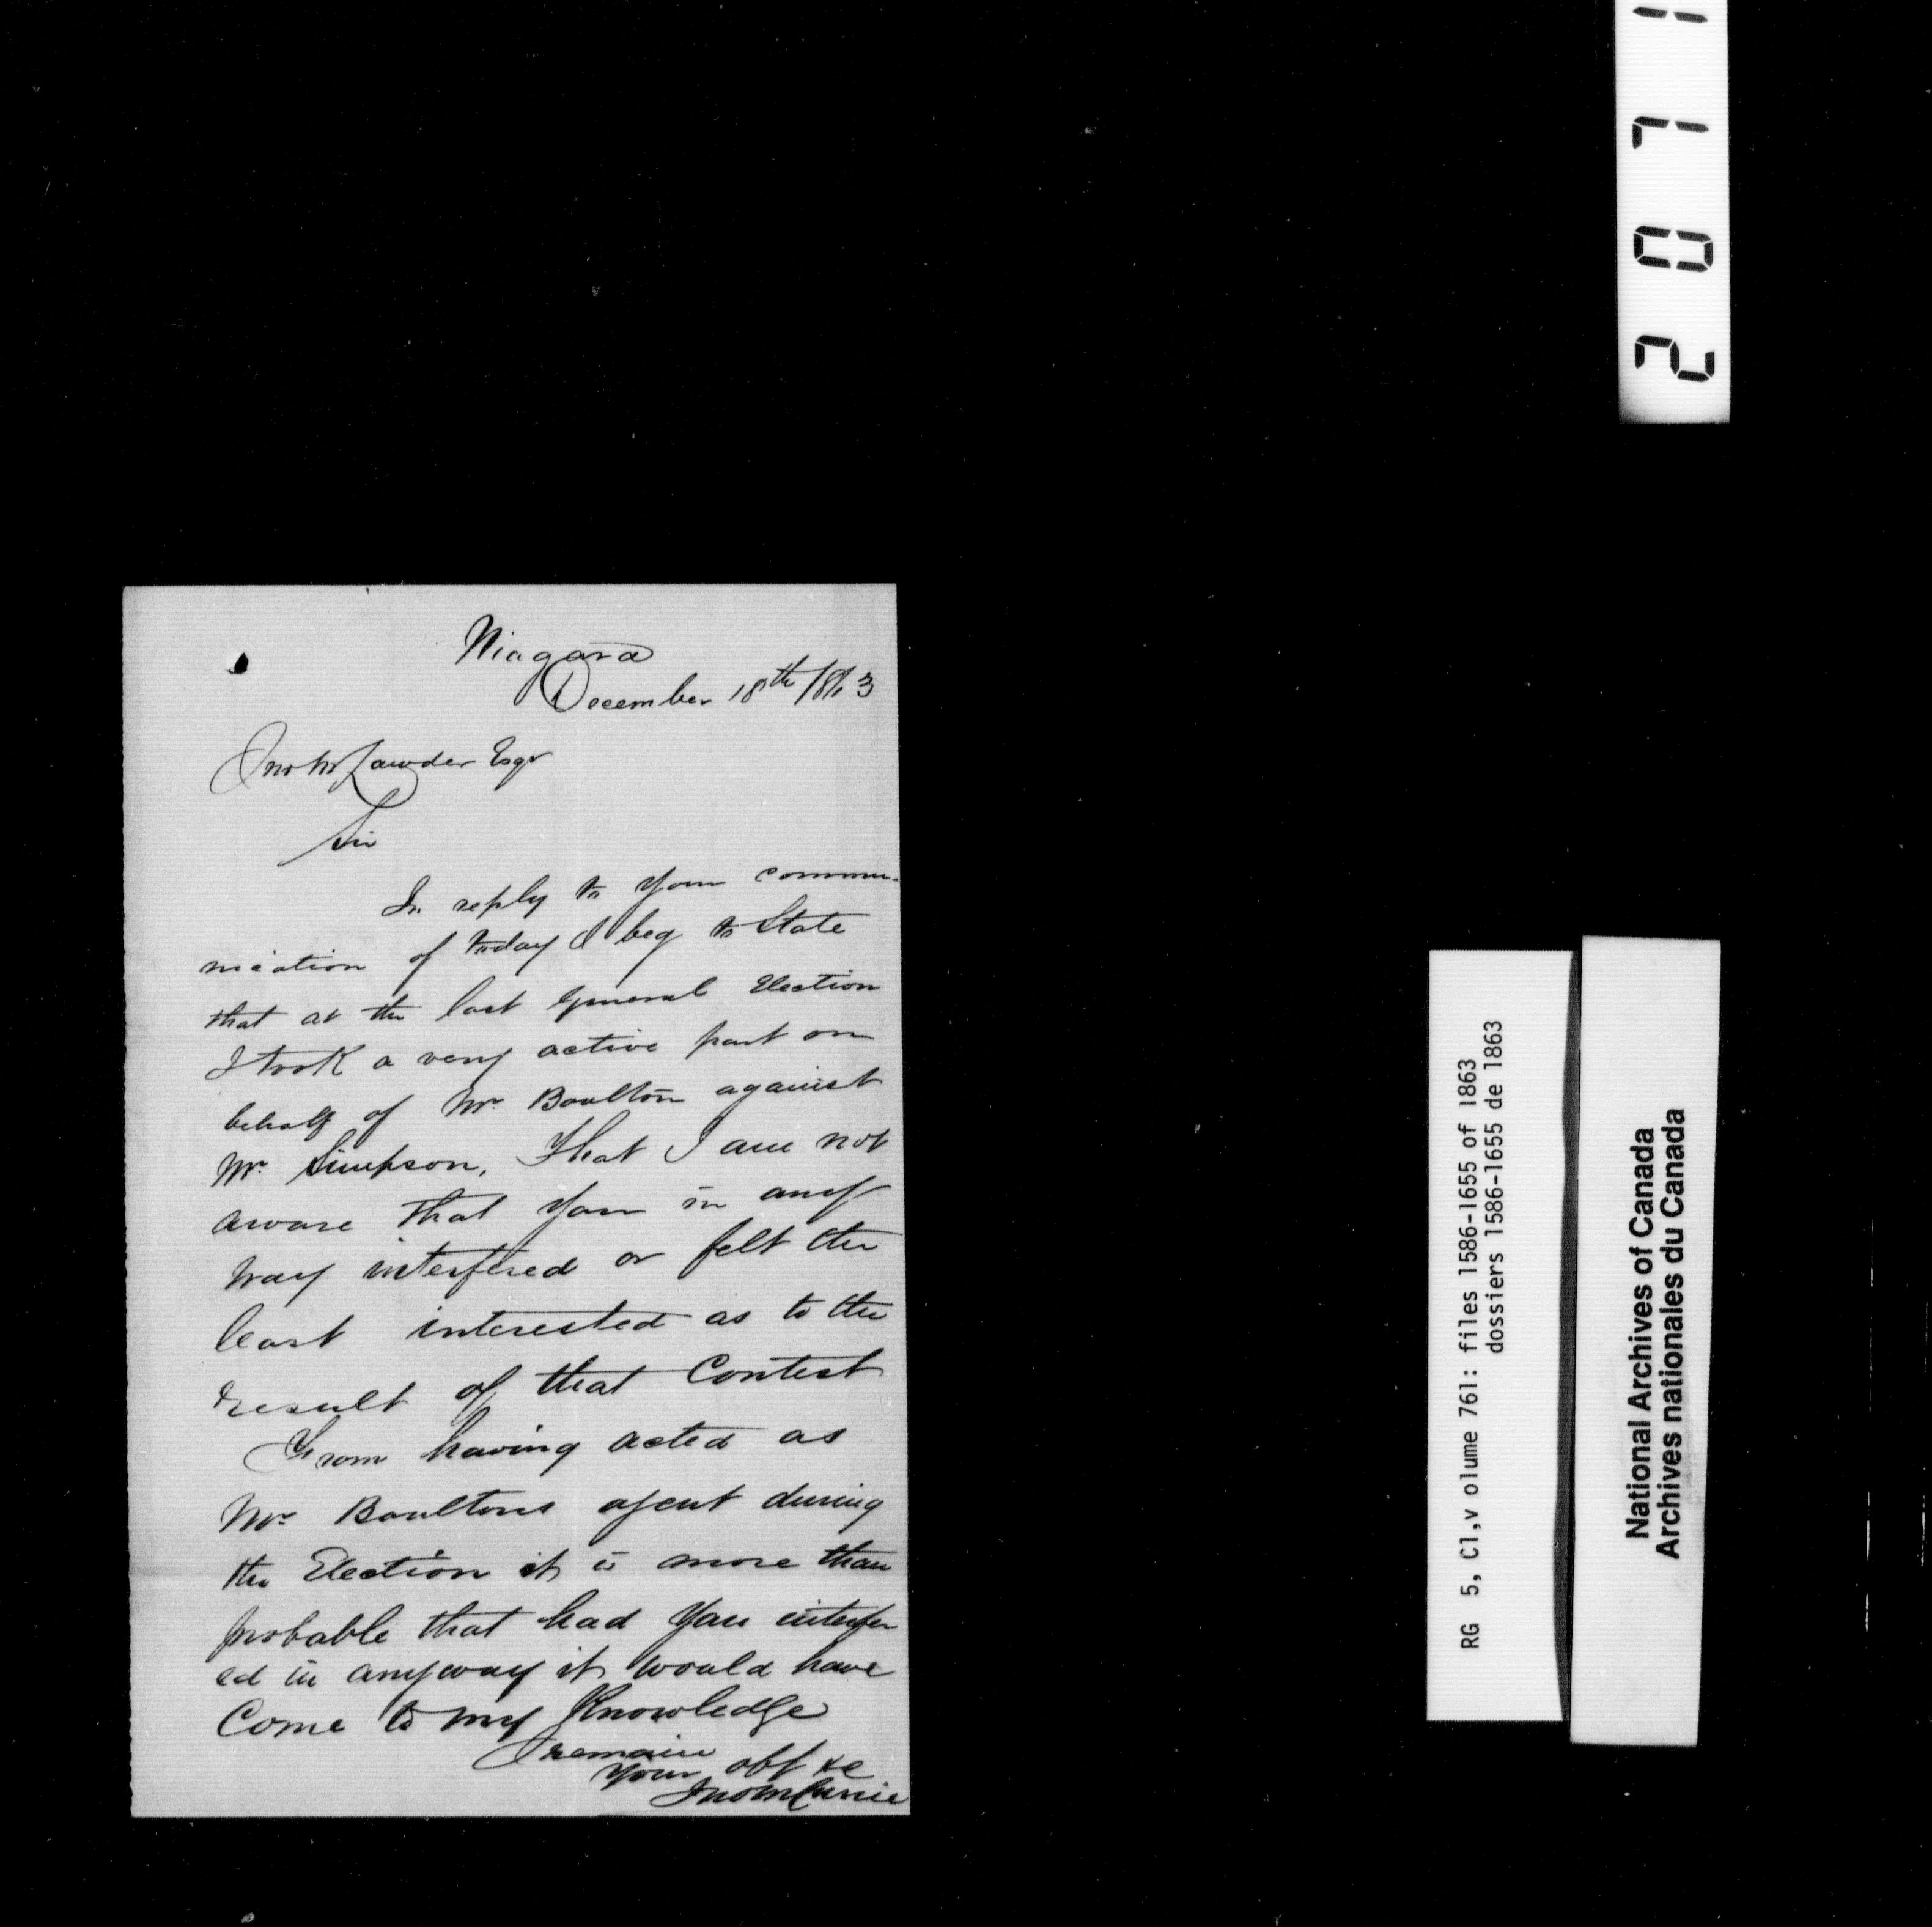 Niagara
December 18th /863
Jno M Lawder Esqr
Sir
In reply to your commu-
nication of today I beg to State
that at the last general Election
I took a very active part on
behalf of Mr. Boulton against
Mr. Simpson, That I am not
aware that you in any
way interfered or felt the
least interested as to the
result of that Contest
From having acted as
Mr. Boultons agent during
the Election it is more than
probable that had you interfer
ed in anyway it would have
Come to my Knowledge
I remain
Your obt &c
Jno
2071
RG 5, C1,v olume 761: files 1586-1655 of 1863
dossiers 1586-1655 de 1863
National Archives of Canada
Archives nationales du Canada